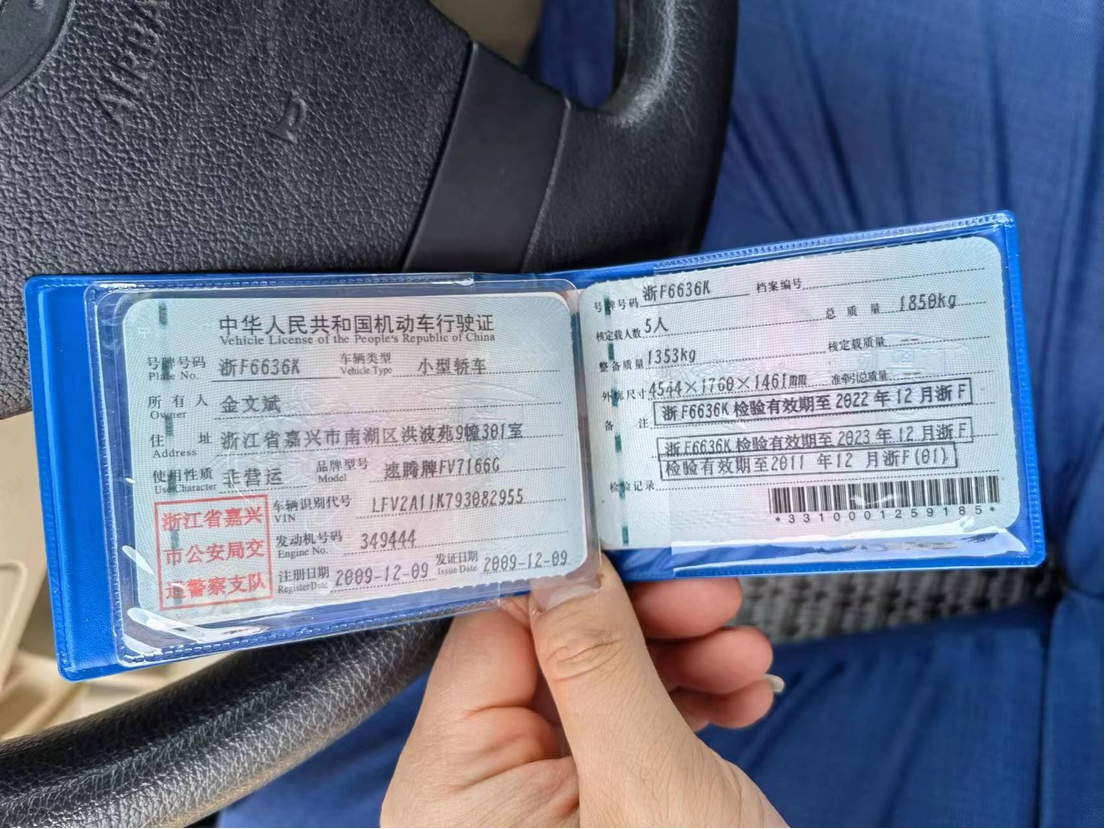 AIRBA
中华人民共和国机动车行驶证
Vehicle License of the People's Republic of China
号牌号码 浙F6636K 车辆类型 小型轿车
Plate No. Vehicle Type
所有人 金文斌
Owner
住址 浙江省嘉兴市南湖区洪波苑9幢301室
Address
使用性质 非营运 品牌型号 速腾牌FV7166G
Use Character Model
浙江省嘉兴
市公安局交
通警察支队
车辆识别代号 LFV2A11K793082955
VIN
发动机号码 349444
Engine No.
注册日期 2009-12-09 发证日期 2009-12-09
Register Date Issue Date
号牌号码 浙F6636K 档案编号
核定载人数 5人 总质量 1850kg
整备质量 1353kg 核定载质量 --
外廓尺寸 4544×1760×1461mm 准牵引总质量 --
备注 浙F6636K 检验有效期至 2022 年 12 月 浙 F
浙F6636K 检验有效期至 2023 年 12 月 浙 F
检验有效期至2011 年 12 月 浙F(01)
检验记录
*3310001259185*